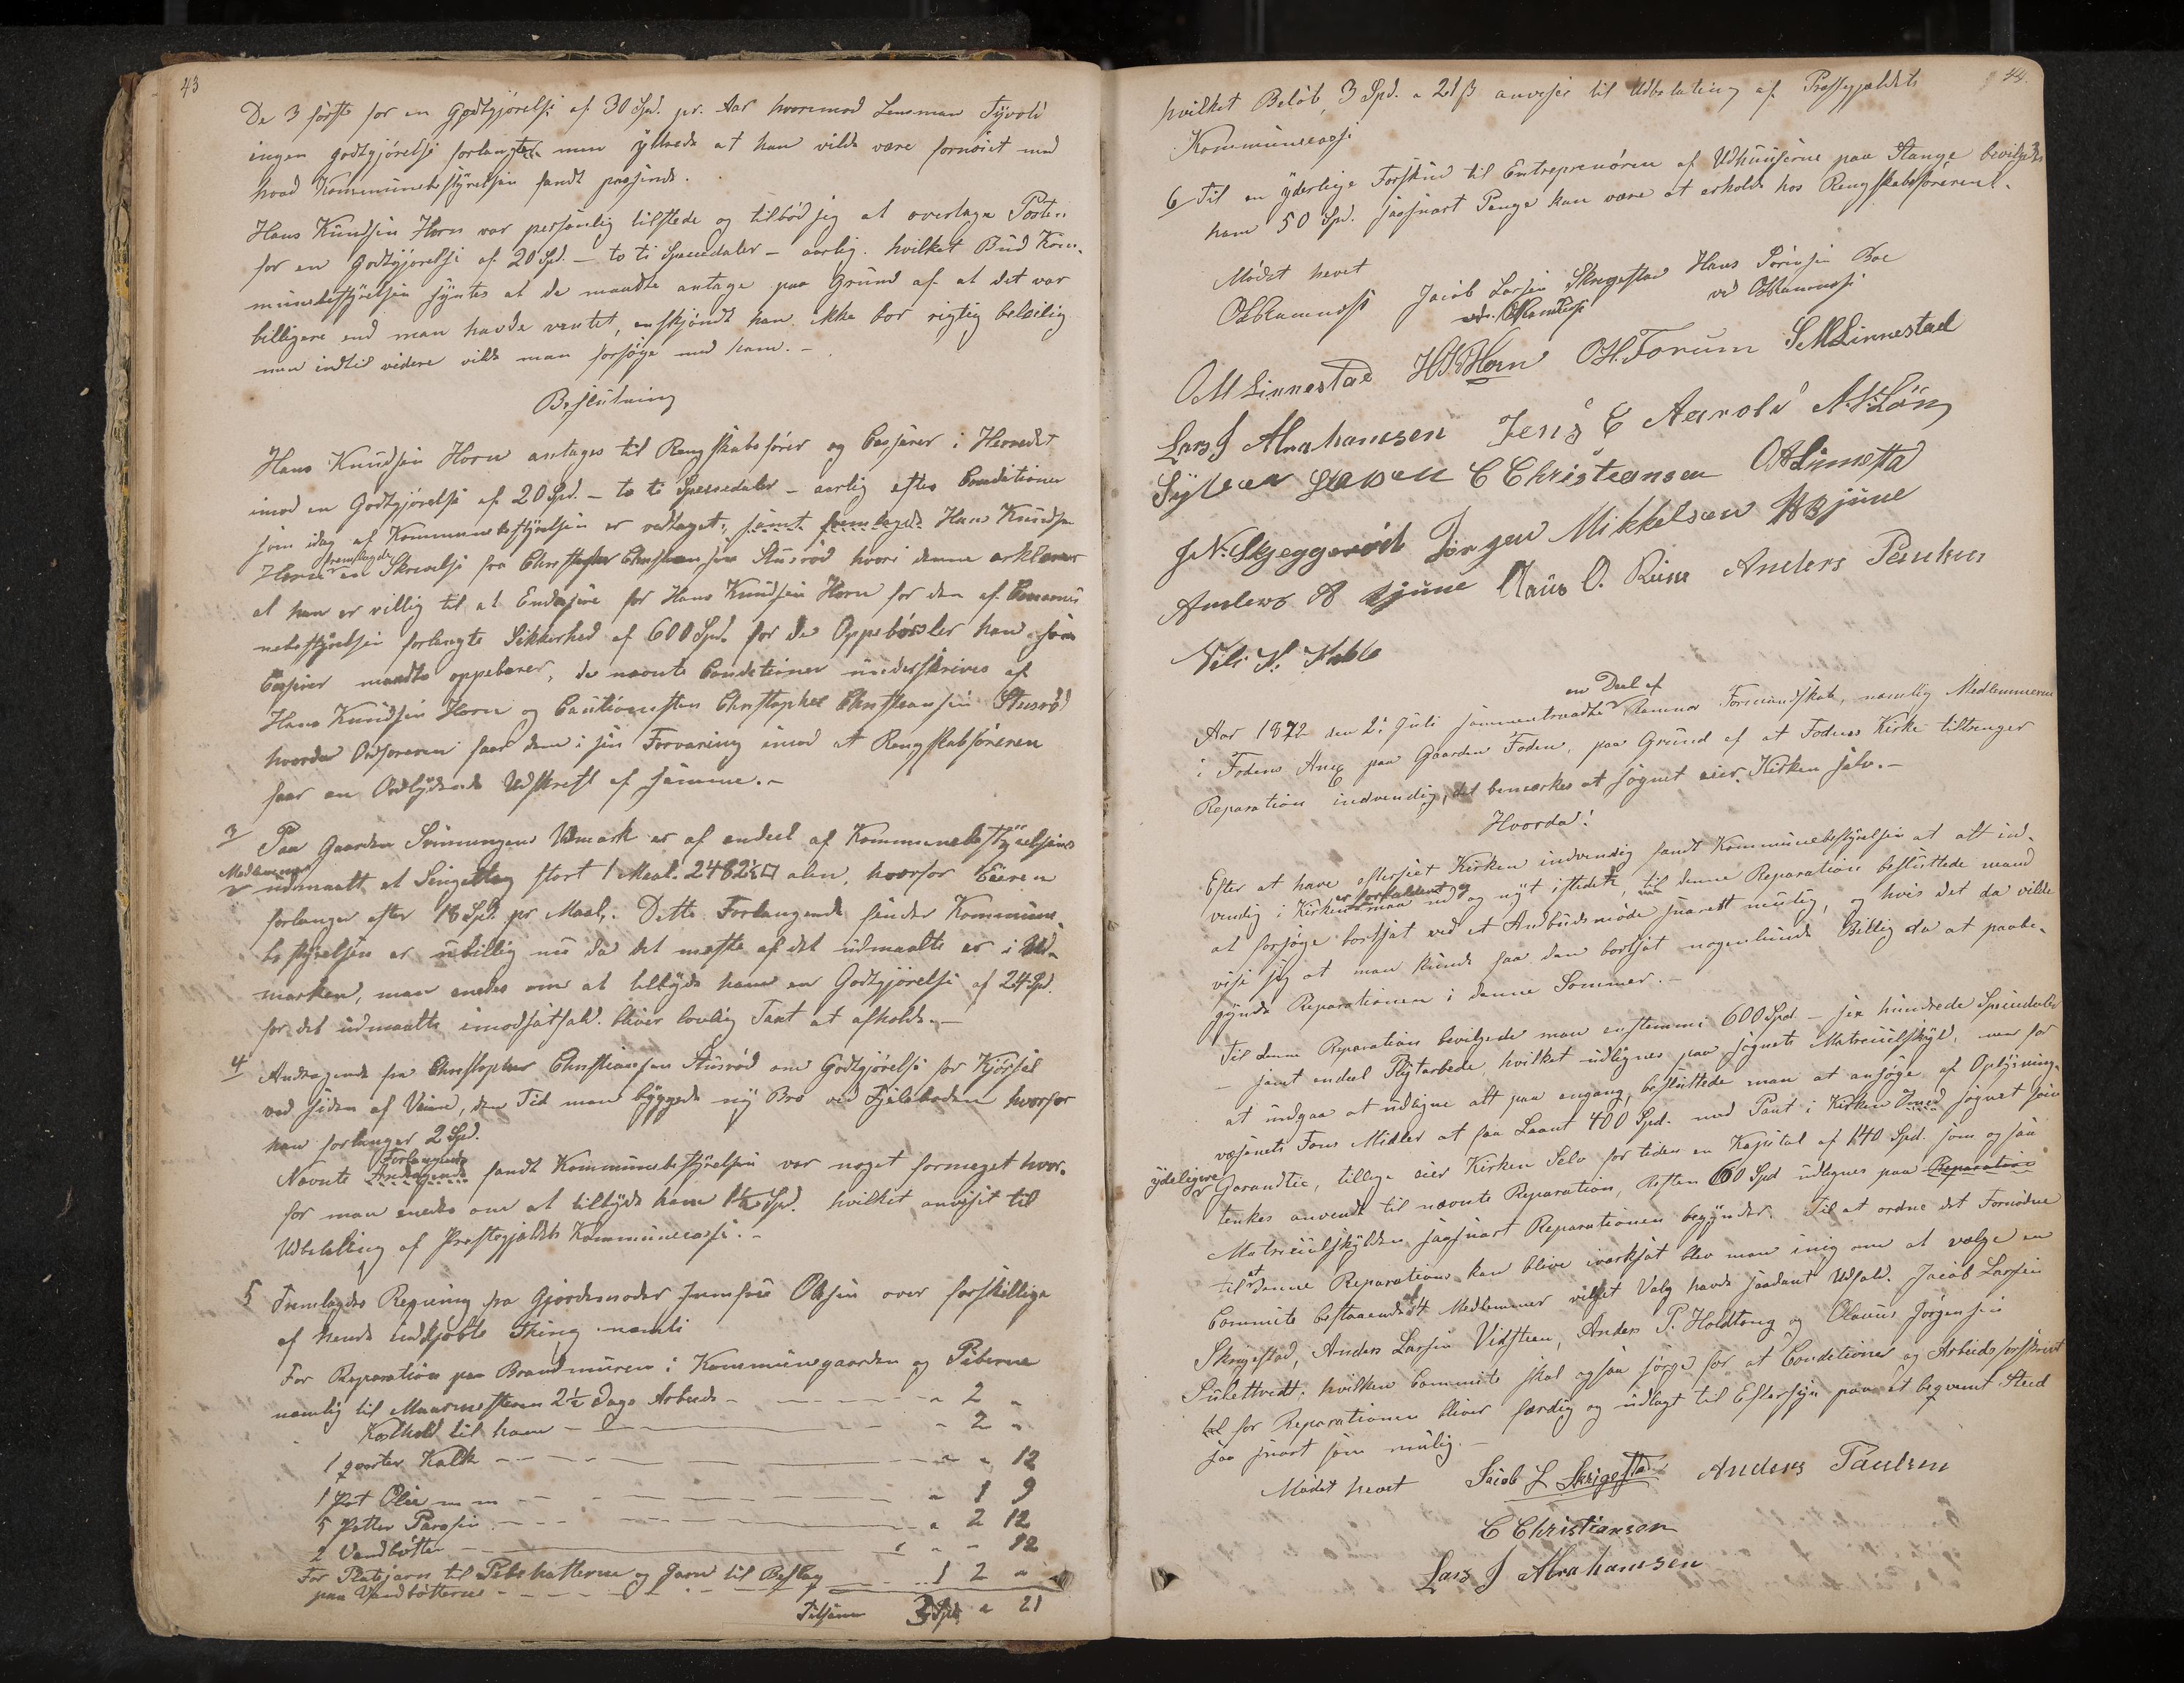 43
De 3 første for en Godtgjørelse af 30 Spd. pr. Aar hvorimod Lensman Tyvold
ingen godtgjørelse forlangte men yttrede at han vilde være fornøiet med
hvad Kommunebestyrelsen fandt passende.
Hans Knudsen Horn var personlig tilstede og tilbød sig at overtage Posten
for en Godtgjørelse af 20 Spd. – to ti Speciedaler – aarlig. hvilket Bud Kom-
munebestyrelsen syntes at de maatte antage paa Grund af at det var
billigere end man havde ventet, enskjøndt han ikke bor rigtig beleilig
men indtil videre vilde man forsøge med ham. –
Beslutning
Hans Knudsen Horn antages til Rengskabsfører og Casserer i Herredet
imod en Godtgjørelse af 20 Spd. – to ti Speciedaler – aarlig efter Conditioner
som idag af Kommunebestyrelsen er vedtaget; samt fremlagde Hans Knudsen
Horn fremlagde en Skrivelse fra Christopher Christiansen Stusrød hvori denne erklærer
at han er villig til at Endosere for Hans Knudsen Horn for den af Commu
nebestyrelsen forlangte Sikkerhed af 600 Spd. for de Oppebørsler han som
Casserer maatte oppebærer, de nævnte Conditioner underskrives af
Hans Knudsen Horn og Cautionisten Christopher Christiansen Stusrød
hvorda Ordføreren faar dem i sin Forvaring imod at Rengskabsføreren
faar en Ordlydende Udskrift af samme. –
3 Paa Gaarden Svinnungens Udmark er af endeel af Kommunebestyrelsens
Medlemmer udmaalt et Sengettag stort 1 Maal. 2482½ □ alen, hvorfor Eieren
forlanger efter 18 Spd. pr Maal,. Dette Forlangende finder Kommune
bestyrelsen er ubillig nu da det meste af det udmaalte er i Ud-
marken, man enedes om at tilbyde ham en Godtgjørelse af 24 Spd.
for det udmaalte imodsatfald. bliver lovlig Taxt at afholde. –
4 Andragende fra Christopher Christiansen Stusrød om Godtgjørelse for Kjørsel
ved siden af Veine, den Tid man byggede ny Bro ved Fjeleboden hvorfor
han forlanger 2 Spd.
Nævnte Andragende Forlangende fandt Kommunebestyrelsen var noget formeget hvor-
for man enedes om at tilbyde ham 1½ Spd. hvilket anvisis til
Udbetaling af Præstegjeldets Kommunecasse. –
5 Fremlagdes Regning fra Gjordemoder Olsen over forskillige
af hende indkjøbte Thing nemlig
For Reparation paa Brandmuren i Kommunegaarden og Piberne
nemlig til Muurmesteren 2½ Dags Arbeide – – – – " 2 "
Kosthold til ham – – – – " 2 "
1 qvarter Kalk – – – – " " 12
1 Pot Olie – – – – " 1 9
5 Potter Parafin – – – – " 2 12
2 Vandbøtter – – – – " " 12
For Platejern til Pibehatterne og Jern til Beslag
paa Vandbøtterne – – – – 1 2 "
Tilsamen 3 Spd. " 21
44.
hvilket Beløb, 3 Spd. " 21 ß anvises til Udbetaling af Præstegjældets
Kommunecasse
6 Til en yderlige Forskud til Entreprenøren af Udhuuserne paa Stange bevilgedes
ham 50 Spd. saasnart Penge kan være at erholde hos Rengskabsføreren. –
Mødet hevet
OARamnæss Jacob Larsen Skregestad Hans Sørensen Boe
ved OARamnæss ved OARamnæss
OM Linnestad HKHorn OH.Forum SMLinnestad
Lars J Abrahamsen Jens C Aarold
C Christiansen OALinnestad
J N. Skjeggerød Jørgen Mikkelsen
Anders Claus O. Anders Paulsen
Aar 1872 den 2. Juli sammentraadte en Deel af Ramnæs Formandskab, nemlig Medlemmerne
i Fodens Anex paa Gaarden Foden, paa Grund af at Fodens Kirke tiltrenger
Reparation indvendig, det bemærkes at sognet eier Kirken sjelv. –
Hvorda:
Efter at have efterseet Kirken indvendig fandt Kommunebestyrelsen at alt ind-
vendig i Kirken er forfaldent og maa ud og nyt istedet, til denne Reparation besluttede mand
at forsøge bortsat ved et Anbudsmøde snarest mulig, og hvis det da vilde
vise sig at man kunde faa den bortsat nogenlunde Billig da at paabe-
gynde Reparationen i denne Sommer. –
Til denne Reparation bevilgede man enstemmi 600 Spd. – sex hundrede Speciedaler
– samt endeel Pligtarbeide, hvilket udlignes paa sognets Matreculskyld, men for
at undgaa at udligne alt paa engang, besluttede man at ansøge af Oplysnings-
væsenets Fons Midler at faa Laant 400 Spd. mod Pant i Kirken med sognet som
ydeligere Garandtie, tillige eier Kirken Selv for tiden en Kapital af 140 Spd. som og saa
tenkes anvendt til nævnte Reparation, Resten 60 Spd udlignes paa Reparation
Matreculskylden saasnart Reparationen begynder. Til at ordne det Fornødne
til at denne Reparation kan blive iverksat blev man enig om at vælge en
Committe bestaaende af 4 Medlemmer vilket Valg havde saadant Udfald. Jacob Larsen
Skregestad, Anders Larsen Vidsteen, Anders P. Holdtong og Olaus Jørgensen
Sulettvedt, hvilken Committe skal ogsaa sørge for at Conditioner og Arbeidsforskrivt
for Reparationen bliver færdig og udlagt til Eftersyn paa et beqvemt Sted
saa snart som mulig. –
Mødet hevet Jacob L Skregestad Anders Paulsen
C Christiansen
Lars J Abrahamsen